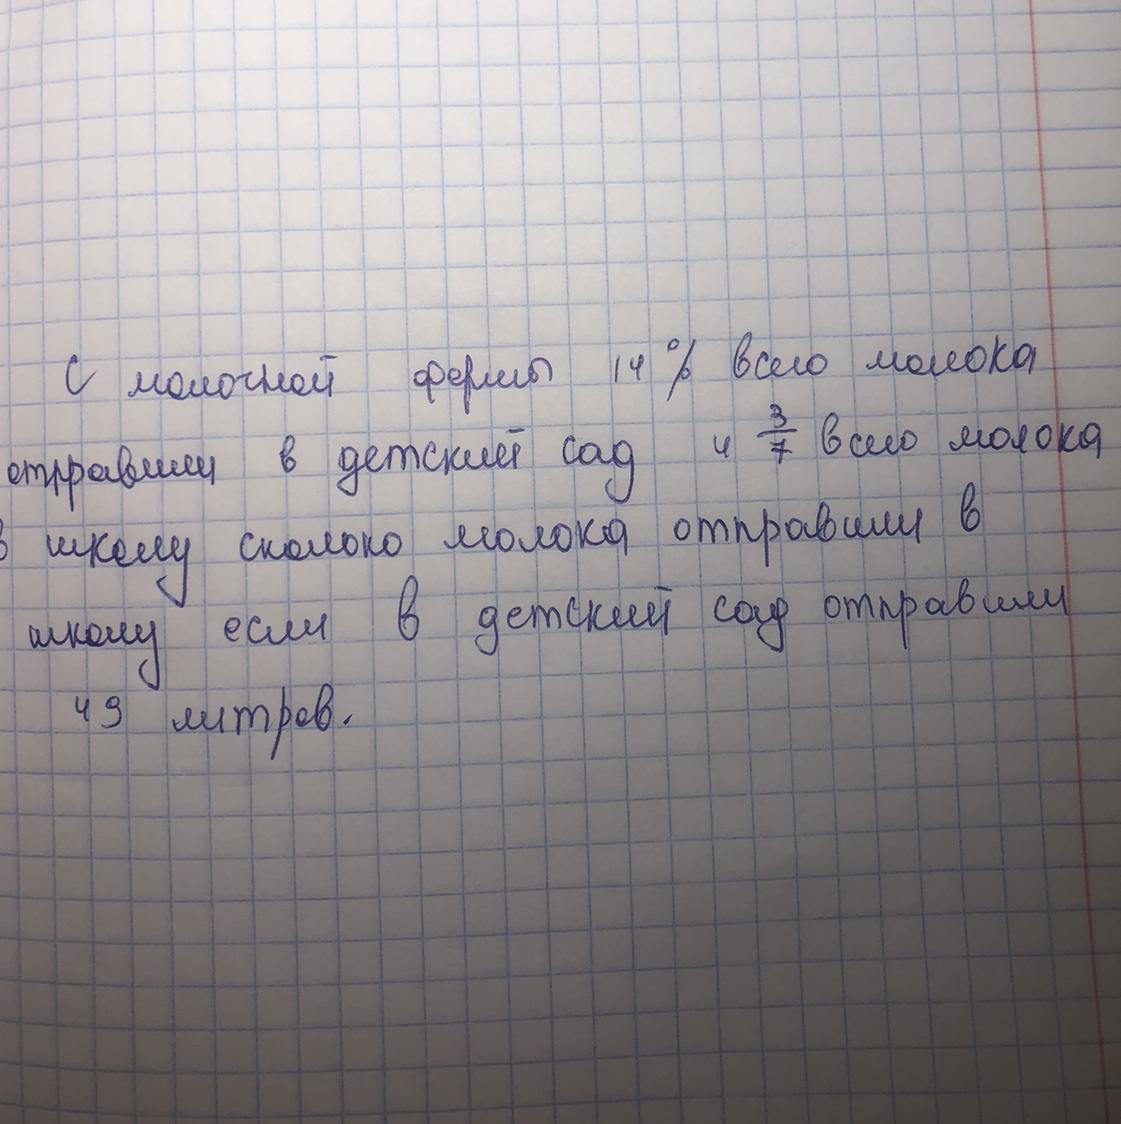 С молочной фермы 14% всего молока
отправили в детский сад и 3/7 всего молока
в школу сколоко молока отправили в
школу если в детский сад отправили
49 литров.